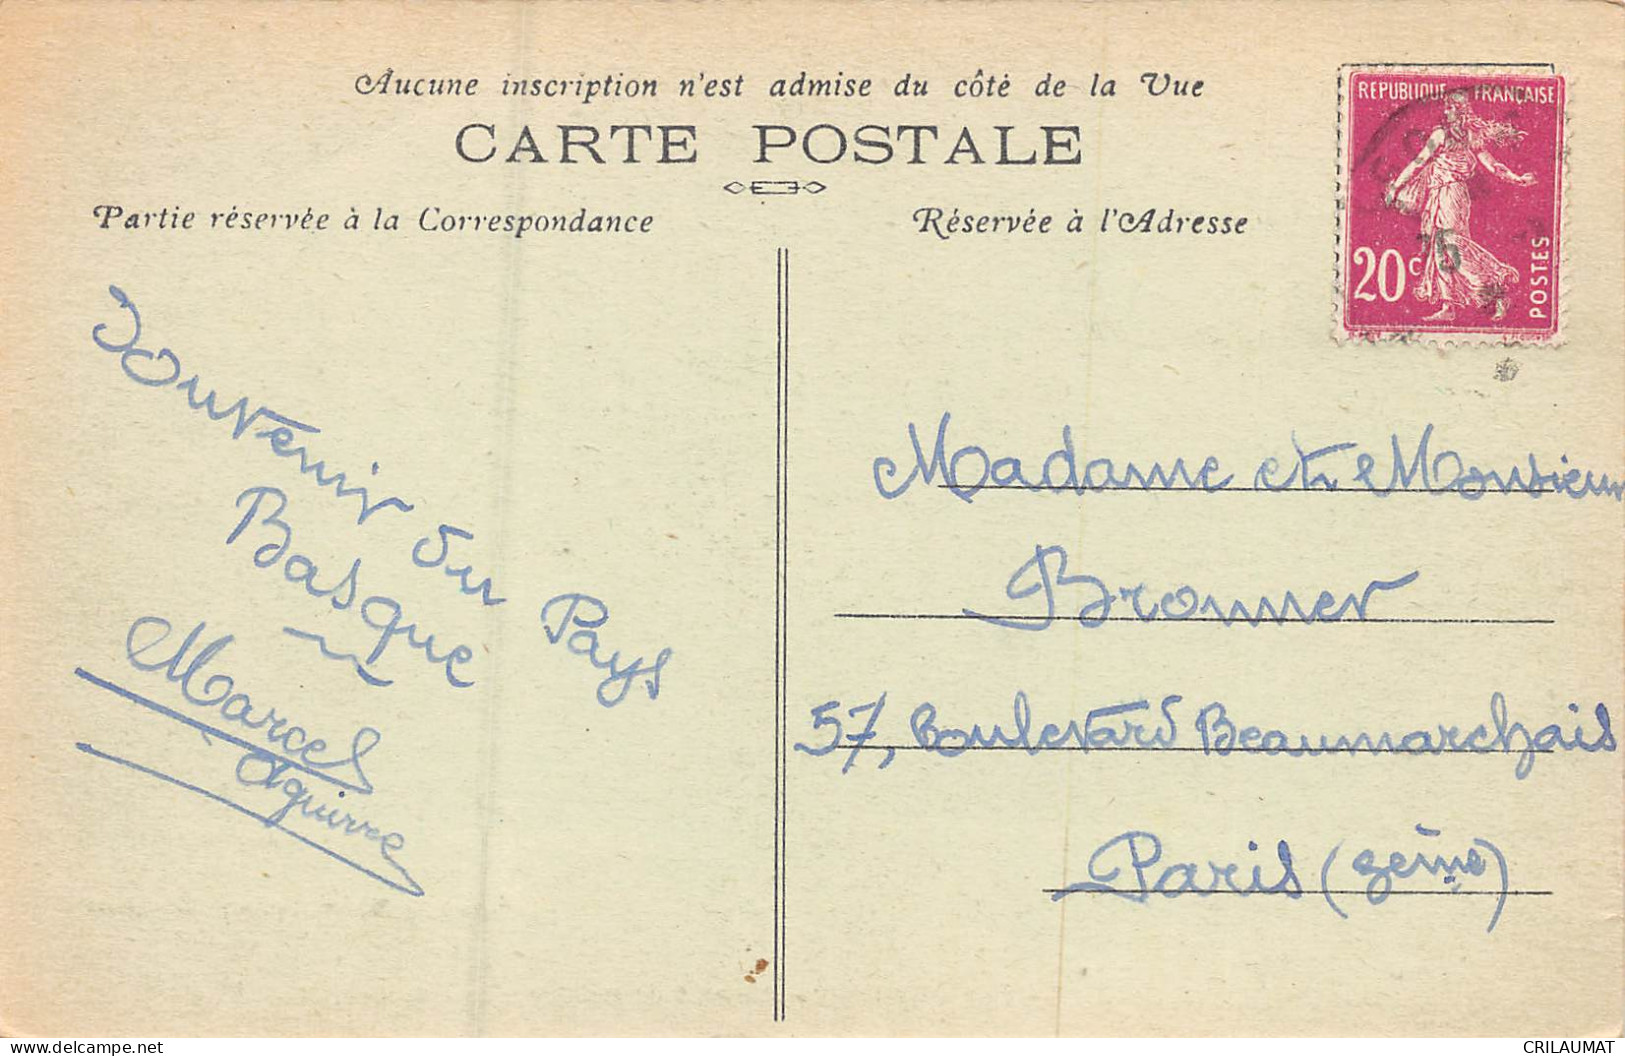 Aucune inscription n'est admise du côté de la Vue
CARTE POSTALE
Partie réservée à la Correspondance
Réservée à l'Adresse
REPUBLIQUE FRANÇAISE
20c
POSTES
15
Souvenir du Pays
Basque
Marcel
Aguirre
Madame et Monsieur
Bronner
57, Boulevard Beaumarchais
Paris (Seine)
delcampe.net
CRILAUMAT